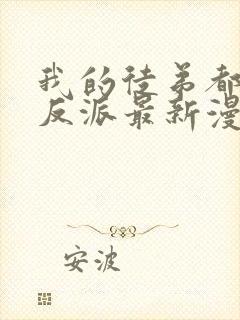 我的徒弟都
反派最新漫
安波